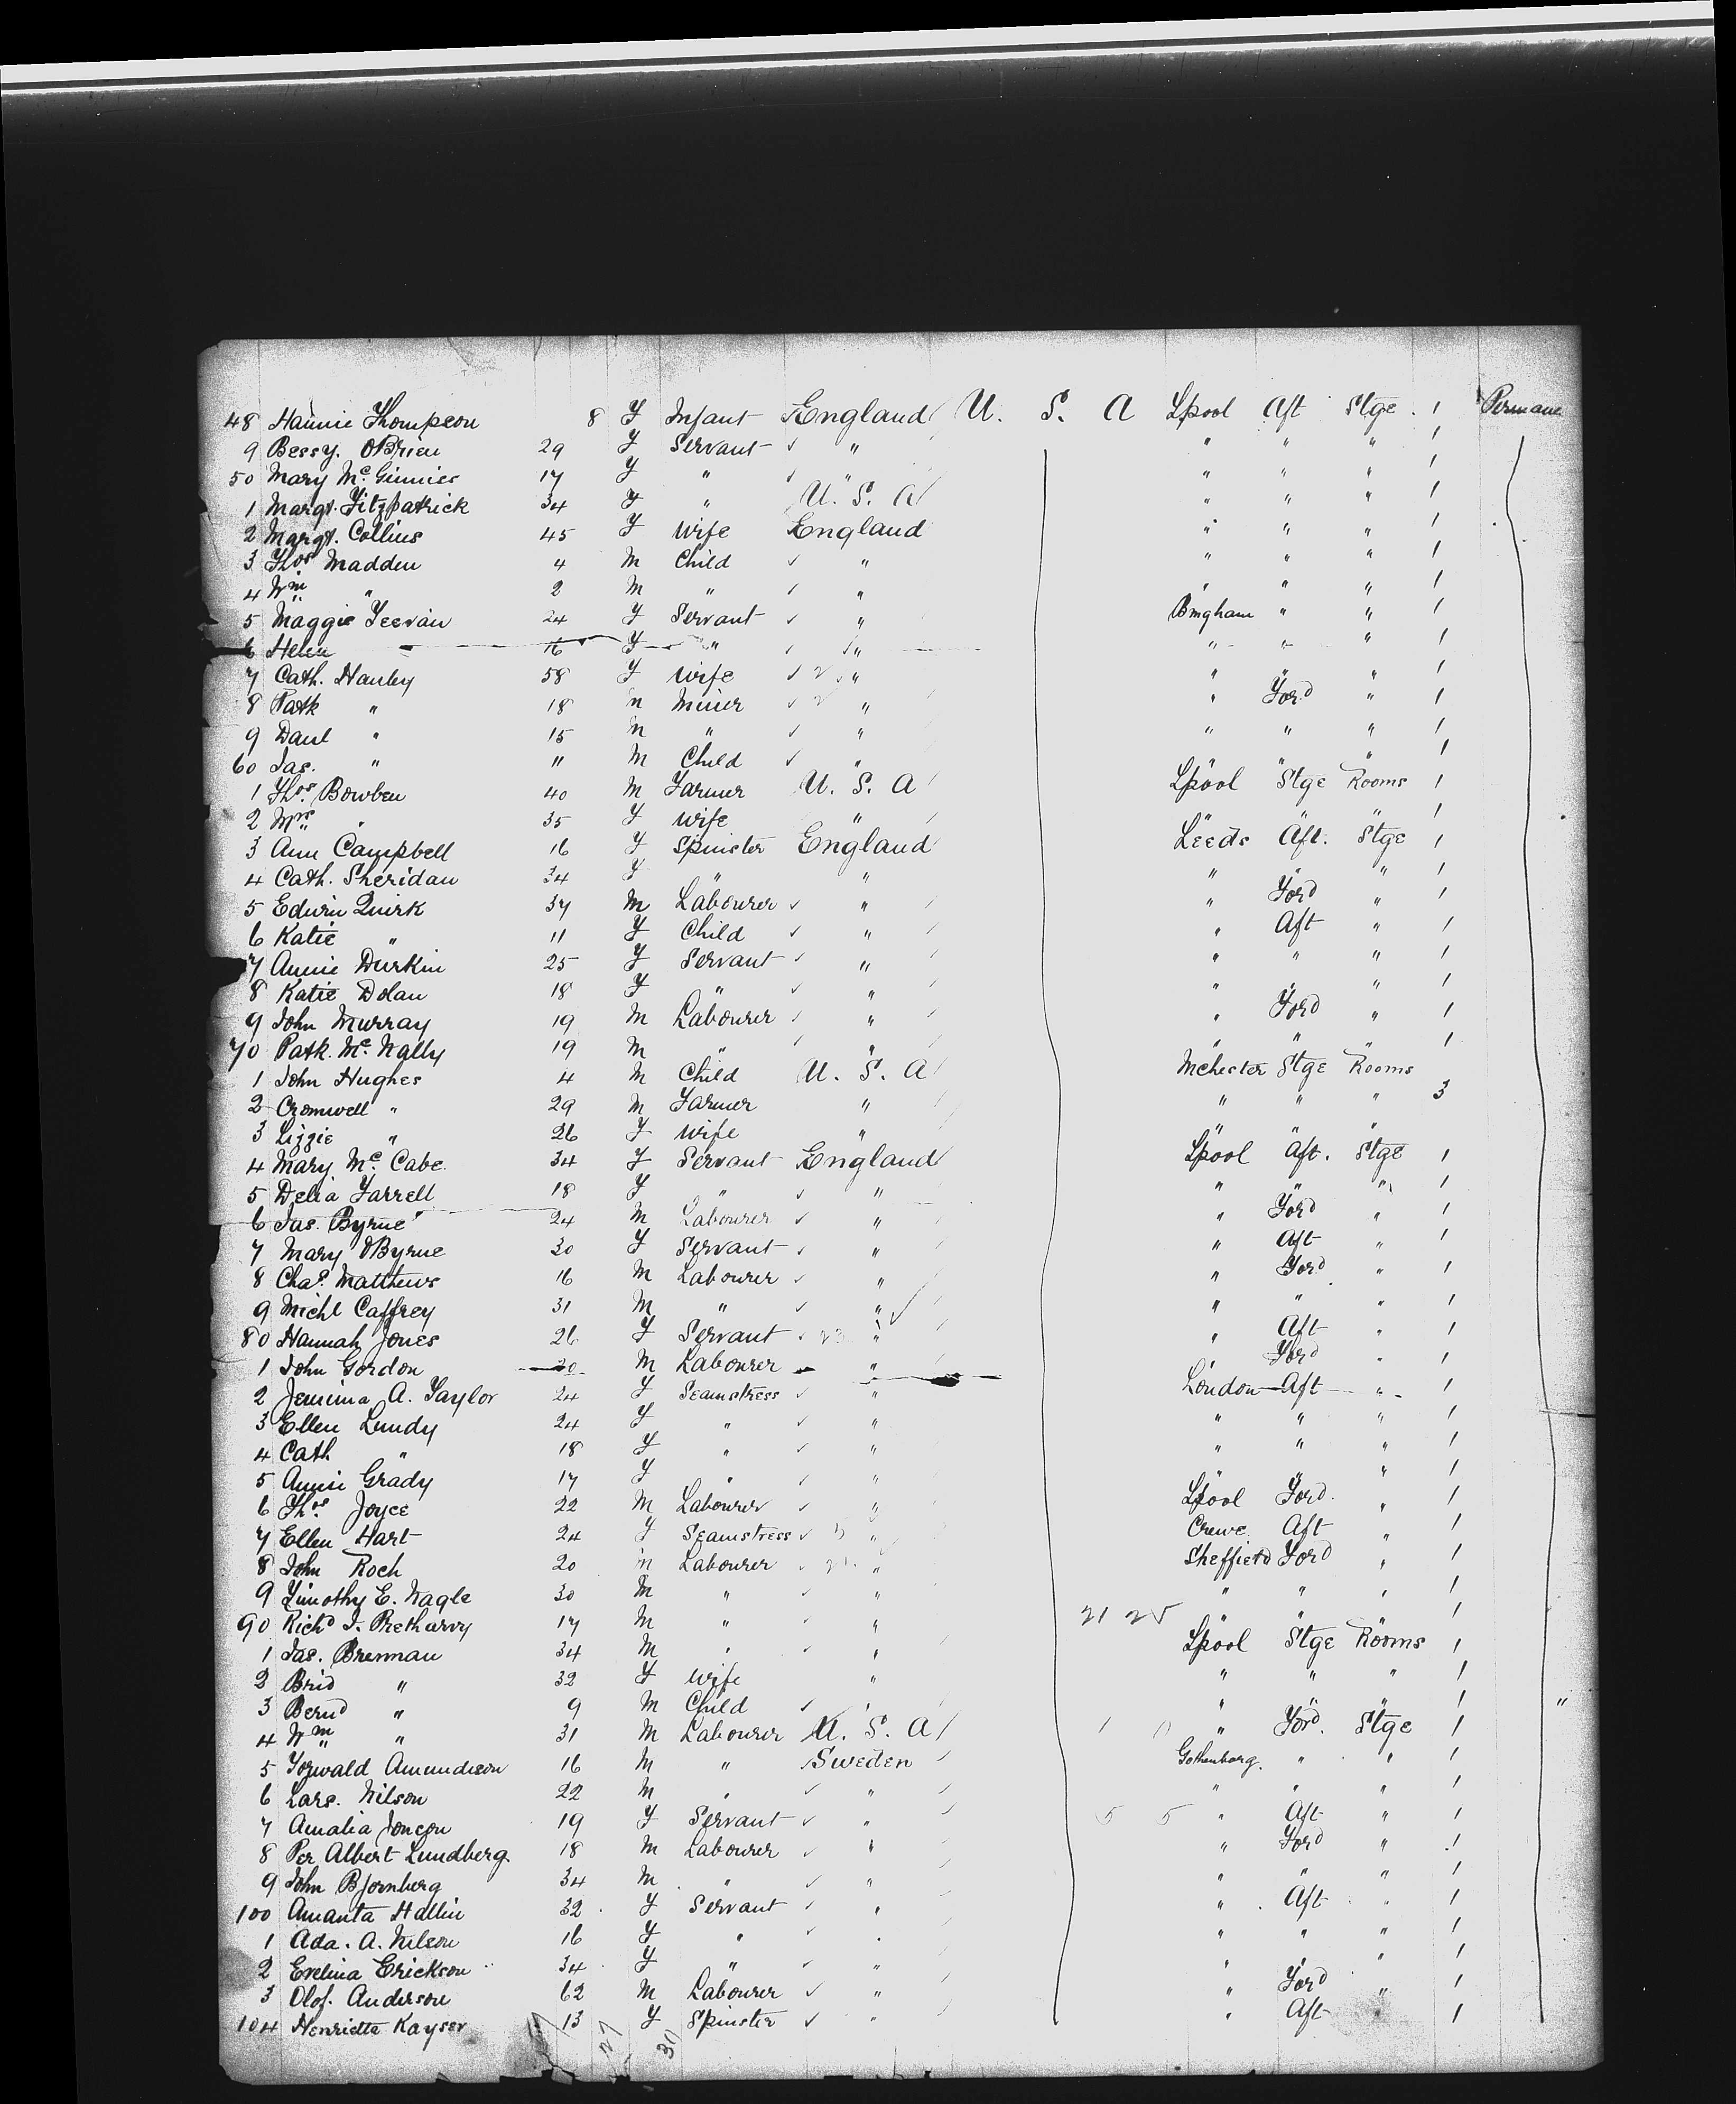 48 Hannie Thompson 8 F Infant England U. S. A Lpool Aft Stge 1 Permane
9 Bessy. OBrien 29 F Servant ✓ " " " " 1
50 Mary Mc Ginnies 17 F " ✓ " " " " 1
1 Margt. Fitzpatrick 34 F " U. S. A " " " 1
2 Margt. Collins 45 F Wife England " " " 1
3 Thos Madden 4 M Child ✓ " " " " 1
4 Wm " 2 M " ✓ " " " " 1
5 Maggie Feevan 24 F Servant ✓ " Bmgham " " 1
6 Helen 16 F " ✓ " " " " 1
7 Cath. Hanley 58 F Wife ✓ " " " " 1
8 Patk " 18 m Miner ✓ " " Ford " 1
9 Danl " 15 m " ✓ " " " " 1
60 Jas. " 11 M Child ✓ " " " " 1
1 Thos. Bowben 40 M Farmer U. S. A Lpool Stge Rooms 1
2 Mrs " 35 F Wife " " " " 1
3 Ann Campbell 16 F Spinster England Leeds Aft. Stge 1
4 Cath. Sheridan 34 F " " " " " 1
5 Edwin Quirk 37 M Labourer ✓ " " Ford " 1
6 Katie " 11 F Child ✓ " " Aft " 1
7 Annie Durkin 25 F Servant ✓ " " " " 1
8 Katie Dolan 18 F " ✓ " " " " 1
9 John Murray 19 M Labourer ✓ " " Ford " 1
70 Patk. Mc. Nally 19 M " ✓ " " " " 1
1 John Hughes 4 M Child U. S. A Mchester Stge Rooms
2 Cromwell " 29 M Farmer " " " " 3
3 Lizzie " 26 F Wife " " " "
4 Mary Mc. Cabe 34 F Servant England Lpool Aft. Stge 1
5 Delia Farrell 18 F " ✓ " " " " 1
6 Jas. Byrne 24 M Labourer ✓ " " Ford " 1
7 Mary OByrne 30 F Servant ✓ " " Aft " 1
8 Chas. Matthews 16 M Labourer ✓ " " Ford " 1
9 Michl Caffrey 31 M " ✓ " " " " 1
80 Hannah Jones 26 F Servant ✓ 23 " " Aft " 1
1 John Gordon 20 M Labourer " " Ford " 1
2 Jemima A. Taylor 24 F Seamstress ✓ " London Aft " 1
3 Ellen Lundy 24 F " ✓ " " " " 1
4 Cath " 18 F " ✓ " " " " 1
5 Annie Grady 17 F " ✓ " " " " 1
6 Thos. Joyce 22 M Labourer ✓ " Lpool Ford. " 1
7 Ellen Hart 24 F Seamstress ✓ " Crewe Aft " 1
8 John Roch 20 m Labourer ✓ " Sheffield Ford " 1
9 Timothy E. Nagle 30 M " ✓ " " " " 1
90 Richd J. Pretharvy 17 M " " 21 25 " " " 1
1 Jas. Brennan 34 M " ✓ " Lpool Stge Rooms 1
2 Brid " 32 F Wife " " " " 1
3 Bernd " 9 M Child ✓ " " " " 1 "
4 Wm " 31 M Labourer U. S. A " Ford. Stge 1
5 Torwald Amundson 16 M " Sweden Gothenborg. " " 1
6 Lars. Nilson 22 M " ✓ " " " " 1
7 Amalia Jonson 19 F Servant ✓ " 5 5 " Aft " 1
8 Per Albert Lundberg. 18 M Labourer ✓ " " Ford " 1
9 John Bjornberg 34 M " ✓ " " " " 1
100 Amanta Hallin 32 F Servant ✓ " " Aft " 1
1 Ada. A. Nilson 16 F " ✓ " " " " 1
2 Evelina Erickson 34 F " ✓ " " " " 1
3 Olof. Anderson 62 M Labourer ✓ " " Ford " 1
104 Henrietta Kayser 13 F Spinster ✓ " " Aft " 1